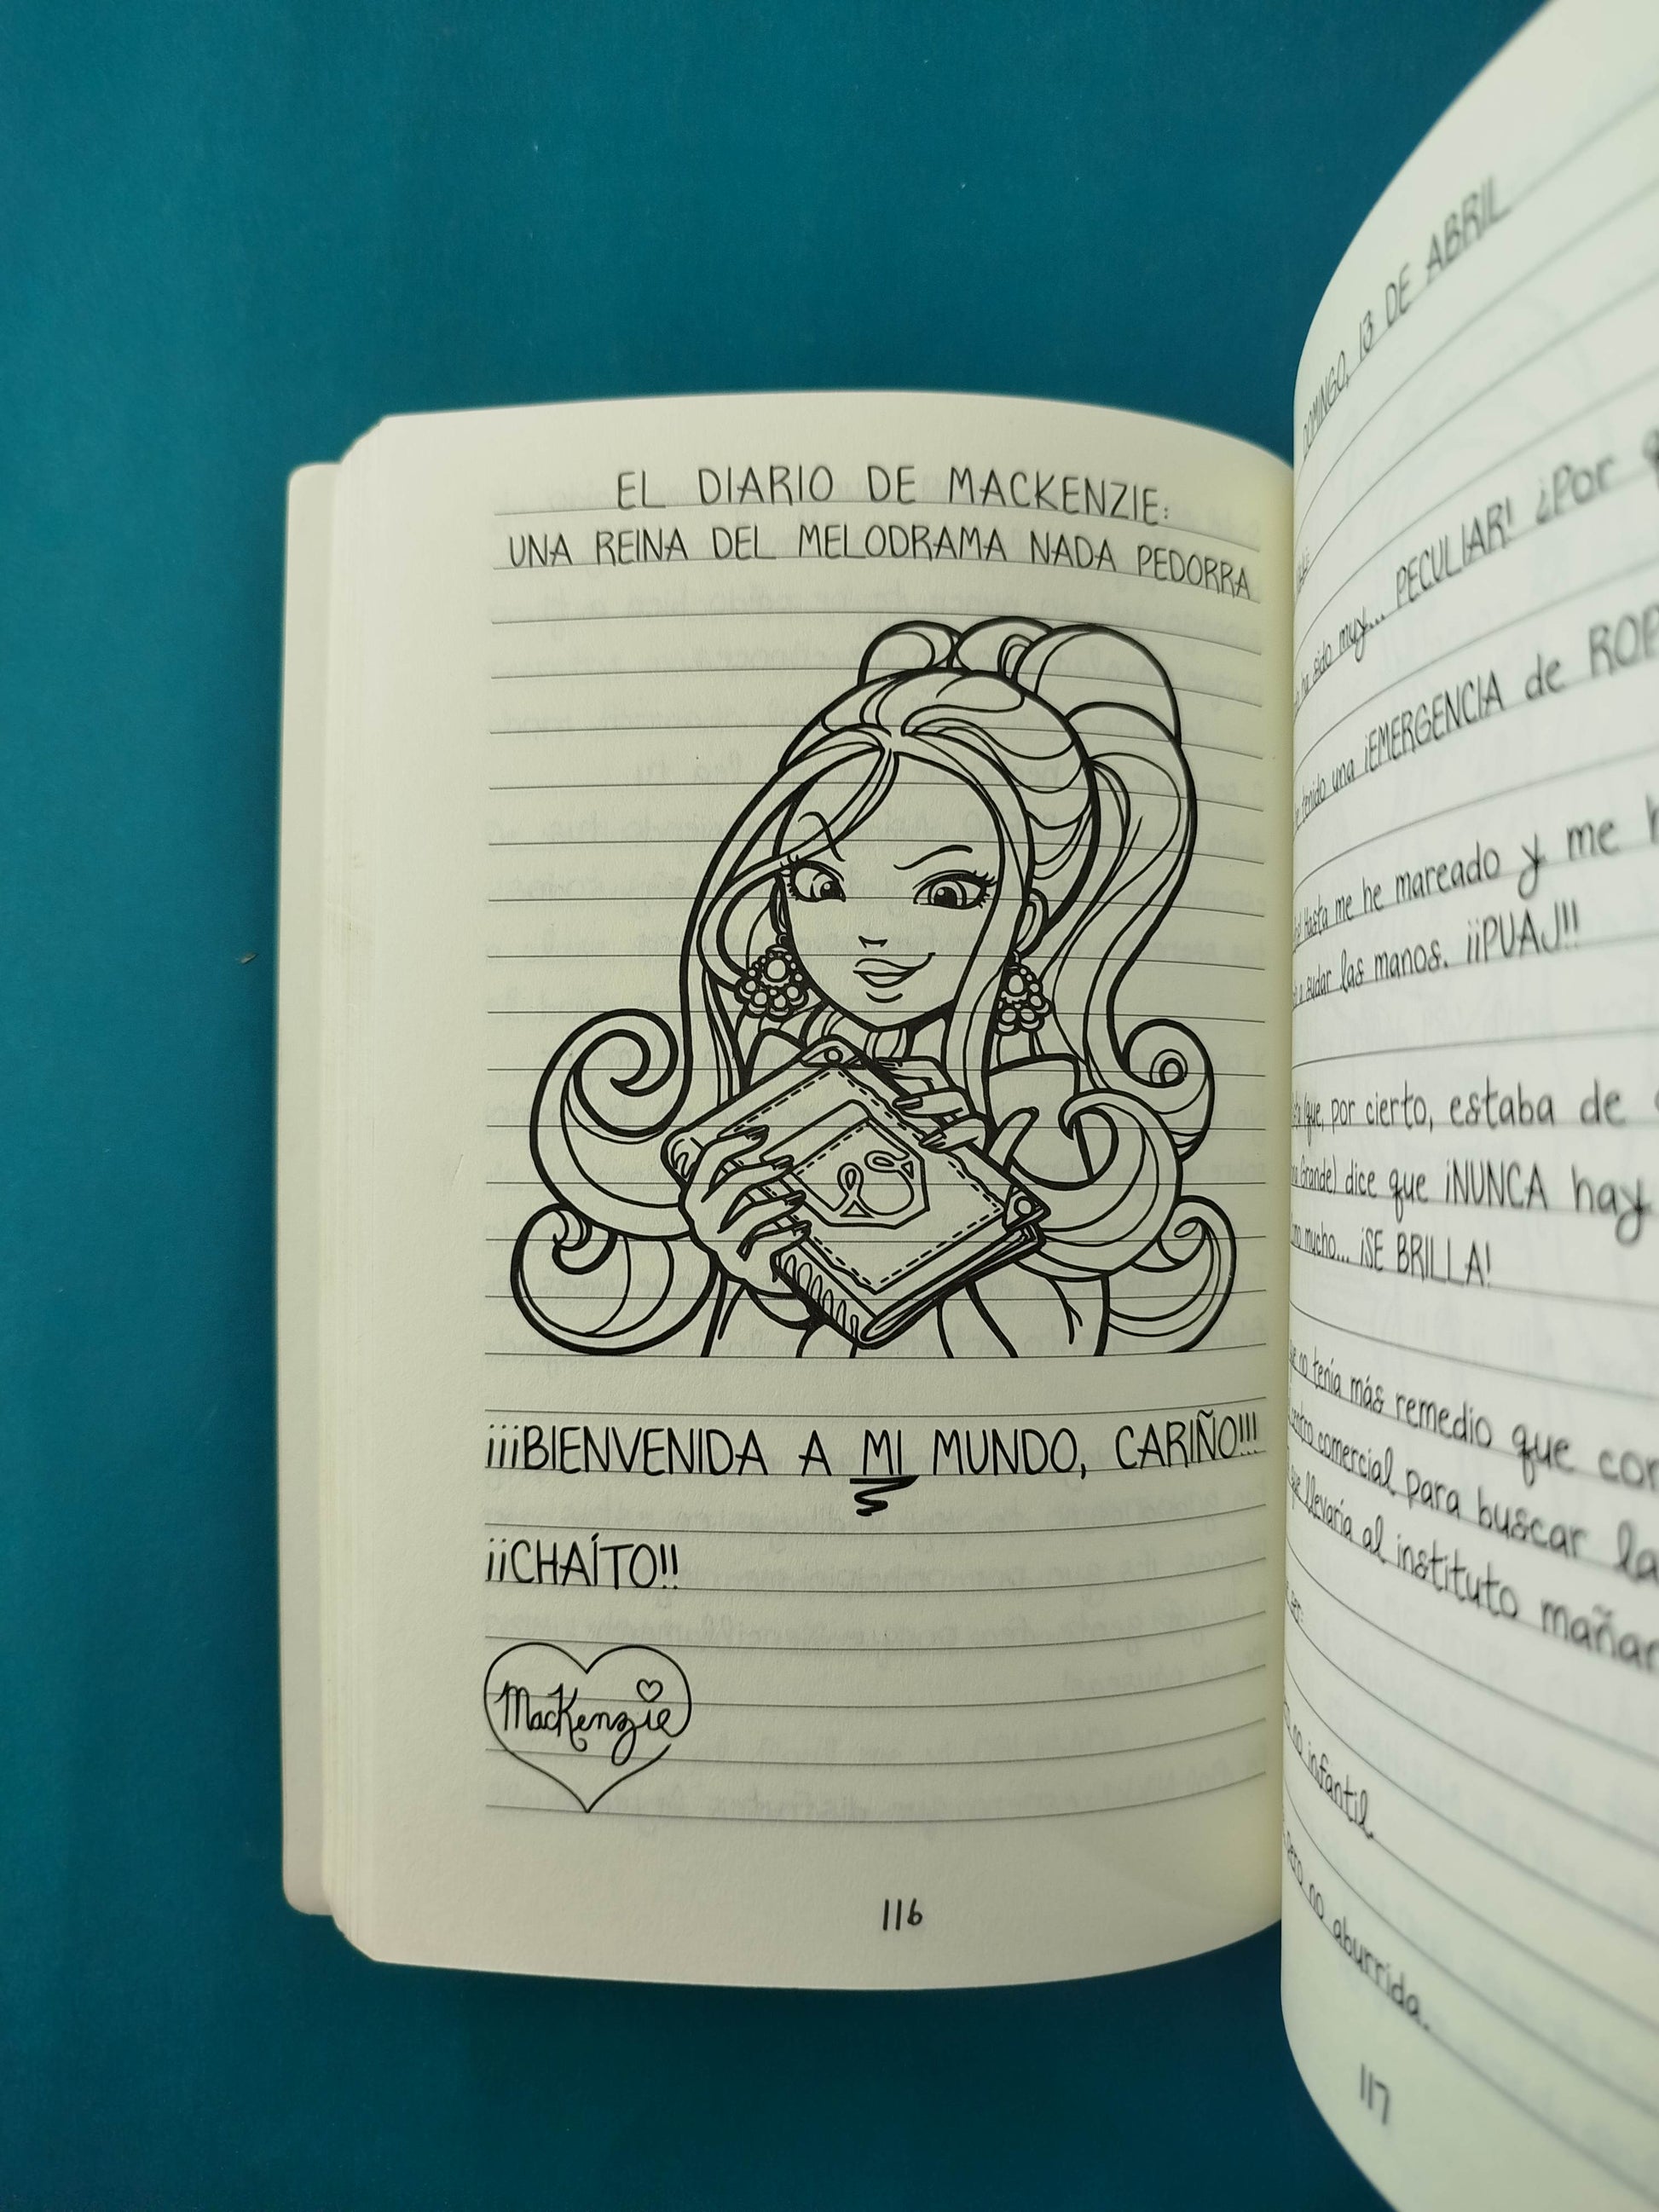 EL DIARIO DE MACKENZIE:
UNA REINA DEL MELODRAMA NADA PEDORRA
¡¡¡BIENVENIDA A MI MUNDO, CARIÑO!!!
¡¡CHAÍTO!!
MacKenzie
116
DOMINGO, 13 DE ABRIL
ha sido muy... PECULIAR! ¿Por
tenido una ¡EMERGENCIA de
Hasta me he mareado y me
a sudar las manos. ¡¡PUAJ!!!
(que, por cierto, estaba de
Grande) dice que ¡NUNCA hay
mucho... ¡SE BRILLA!
no tenía más remedio que
centro comercial para buscar
que llevaría al instituto
no infantil.
pero no aburrida.
117